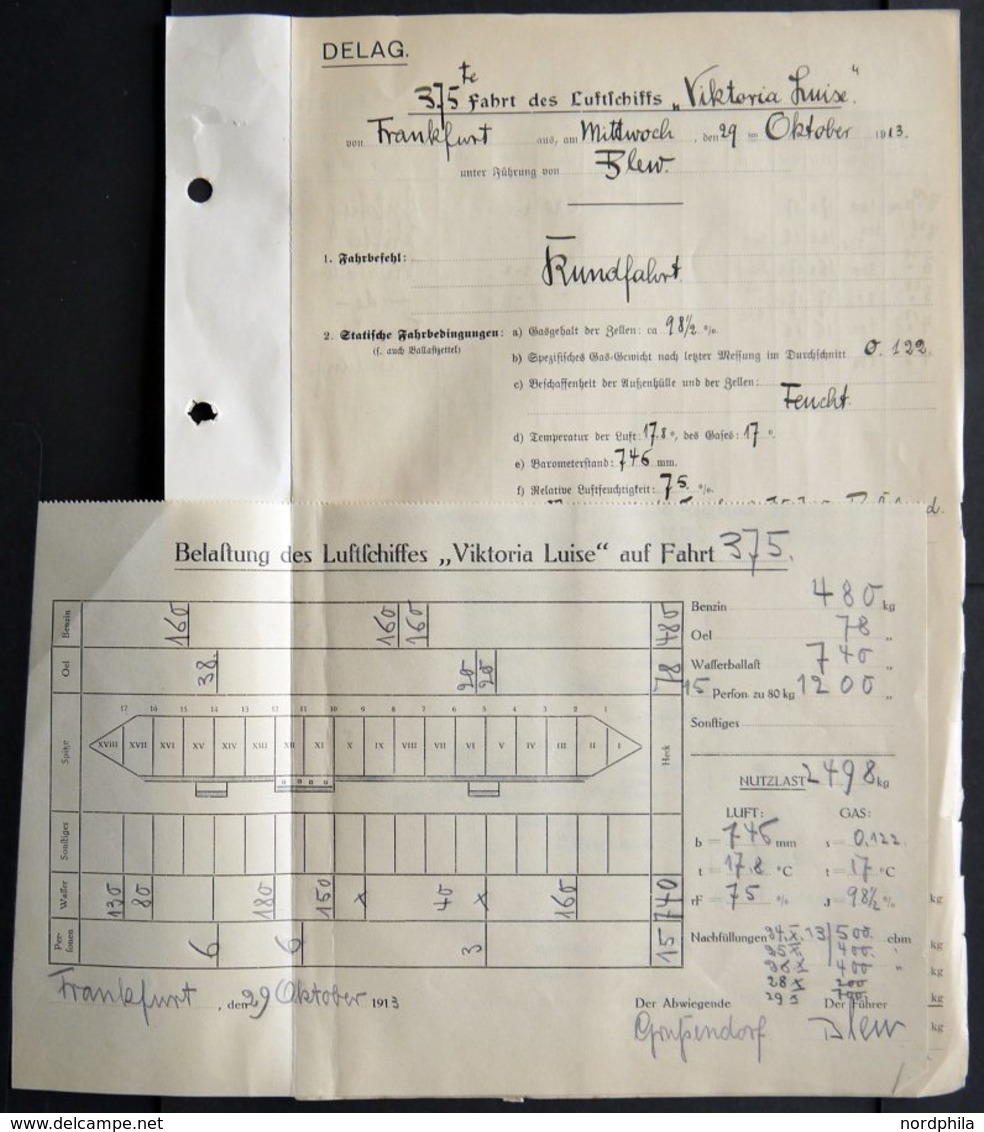 DELAG.
375te Fahrt des Luftschiffs „Viktoria Luise."
von Frankfurt aus, am Mittwoch, den 29 im Oktober 1913.
unter Führung von Blew.
1. Fahrbefehl:
Rundfahrt
2. Statische Fahrbedingungen: a) Gasgehalt der Zellen: ca 98½ %.
(s. auch Ballastzettel)
b) Spezifisches Gas-Gewicht nach letzter Messung im Durchschnitt 0.122.
c) Beschaffenheit der Außenhülle und der Zellen:
Feucht.
d) Temperatur der Luft: 17.8°, des Gases: 17°.
e) Barometerstand: 746 mm.
f) Relative Luftfeuchtigkeit: 75. %.
Belastung des Luftschiffes „Viktoria Luise“ auf Fahrt 375.
Benzin 160 160 160 480
Oel 38. 20 20 78
17 16 15 14 13 12 11 10 9 8 7 6 5 4 3 2 1
Spitze XVIII XVII XVI XV XIV XIII XII XI X IX VIII VII VI V IV III II I Heck
Sonstiges
Wasser 130 80 180 150 x 40 x 160 740
Personen 6 6 3 15
Benzin 480 kg
Oel 78 „
Wasserballast 740 „
15 Person. zu 80 kg 1200 „
Sonstiges
NUTZLAST 2498 kg
LUFT: GAS:
b = 746 mm s = 0.122.
t = 17.8 °C t = 17 °C
rF = 75 % J = 98½ %
kg
Nachfüllungen 24. X. 13 500. cbm
kg
25 X. 400. „
28 X 400 „
kg
28 X 200
29 700
kg
Frankfurt, den 29 Oktober 1913
Der Abwiegende Der Führer
Blew
kg
nordphila